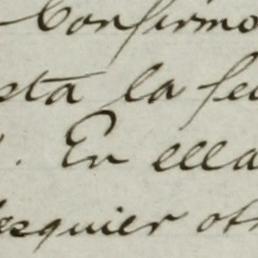 Confirmo
sta la fe
. En ella
esquier ot